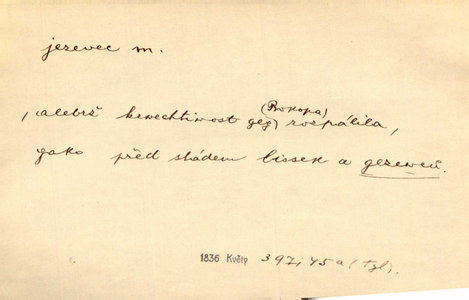 jezevec m.
, alebrž krwechtiwost geg (Prokopa) rozpálila,
gako před stádem lissek a gezewců.
1836 Květy 397, 45 a (Tyl).